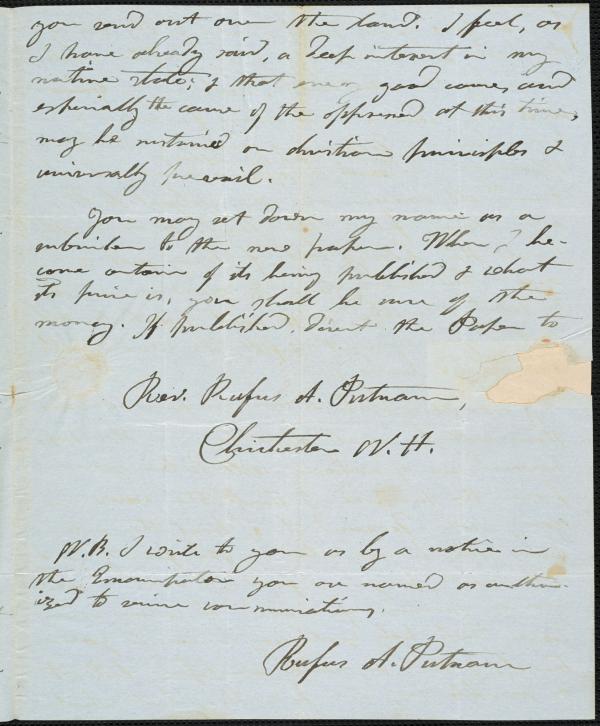 you send out over the land. I feel, as
I have already said, a deep interest in my
native state; & that every good cause, and
especially the cause of the oppressed at this time,
may be sustained on christian principles &
universally prevail.
You may set down my name as a
subscriber to the new paper. When I be-
come certain of its being published & what
its price is, you shall be sure of the
money. If published, direct the Paper to
Rev. Rufus A. Putnam,
Chichester N.H.
N.B. I write to you as by a notice in
the Emancipator you are named as author-
ized to receive communications.
Rufus A. Putnam